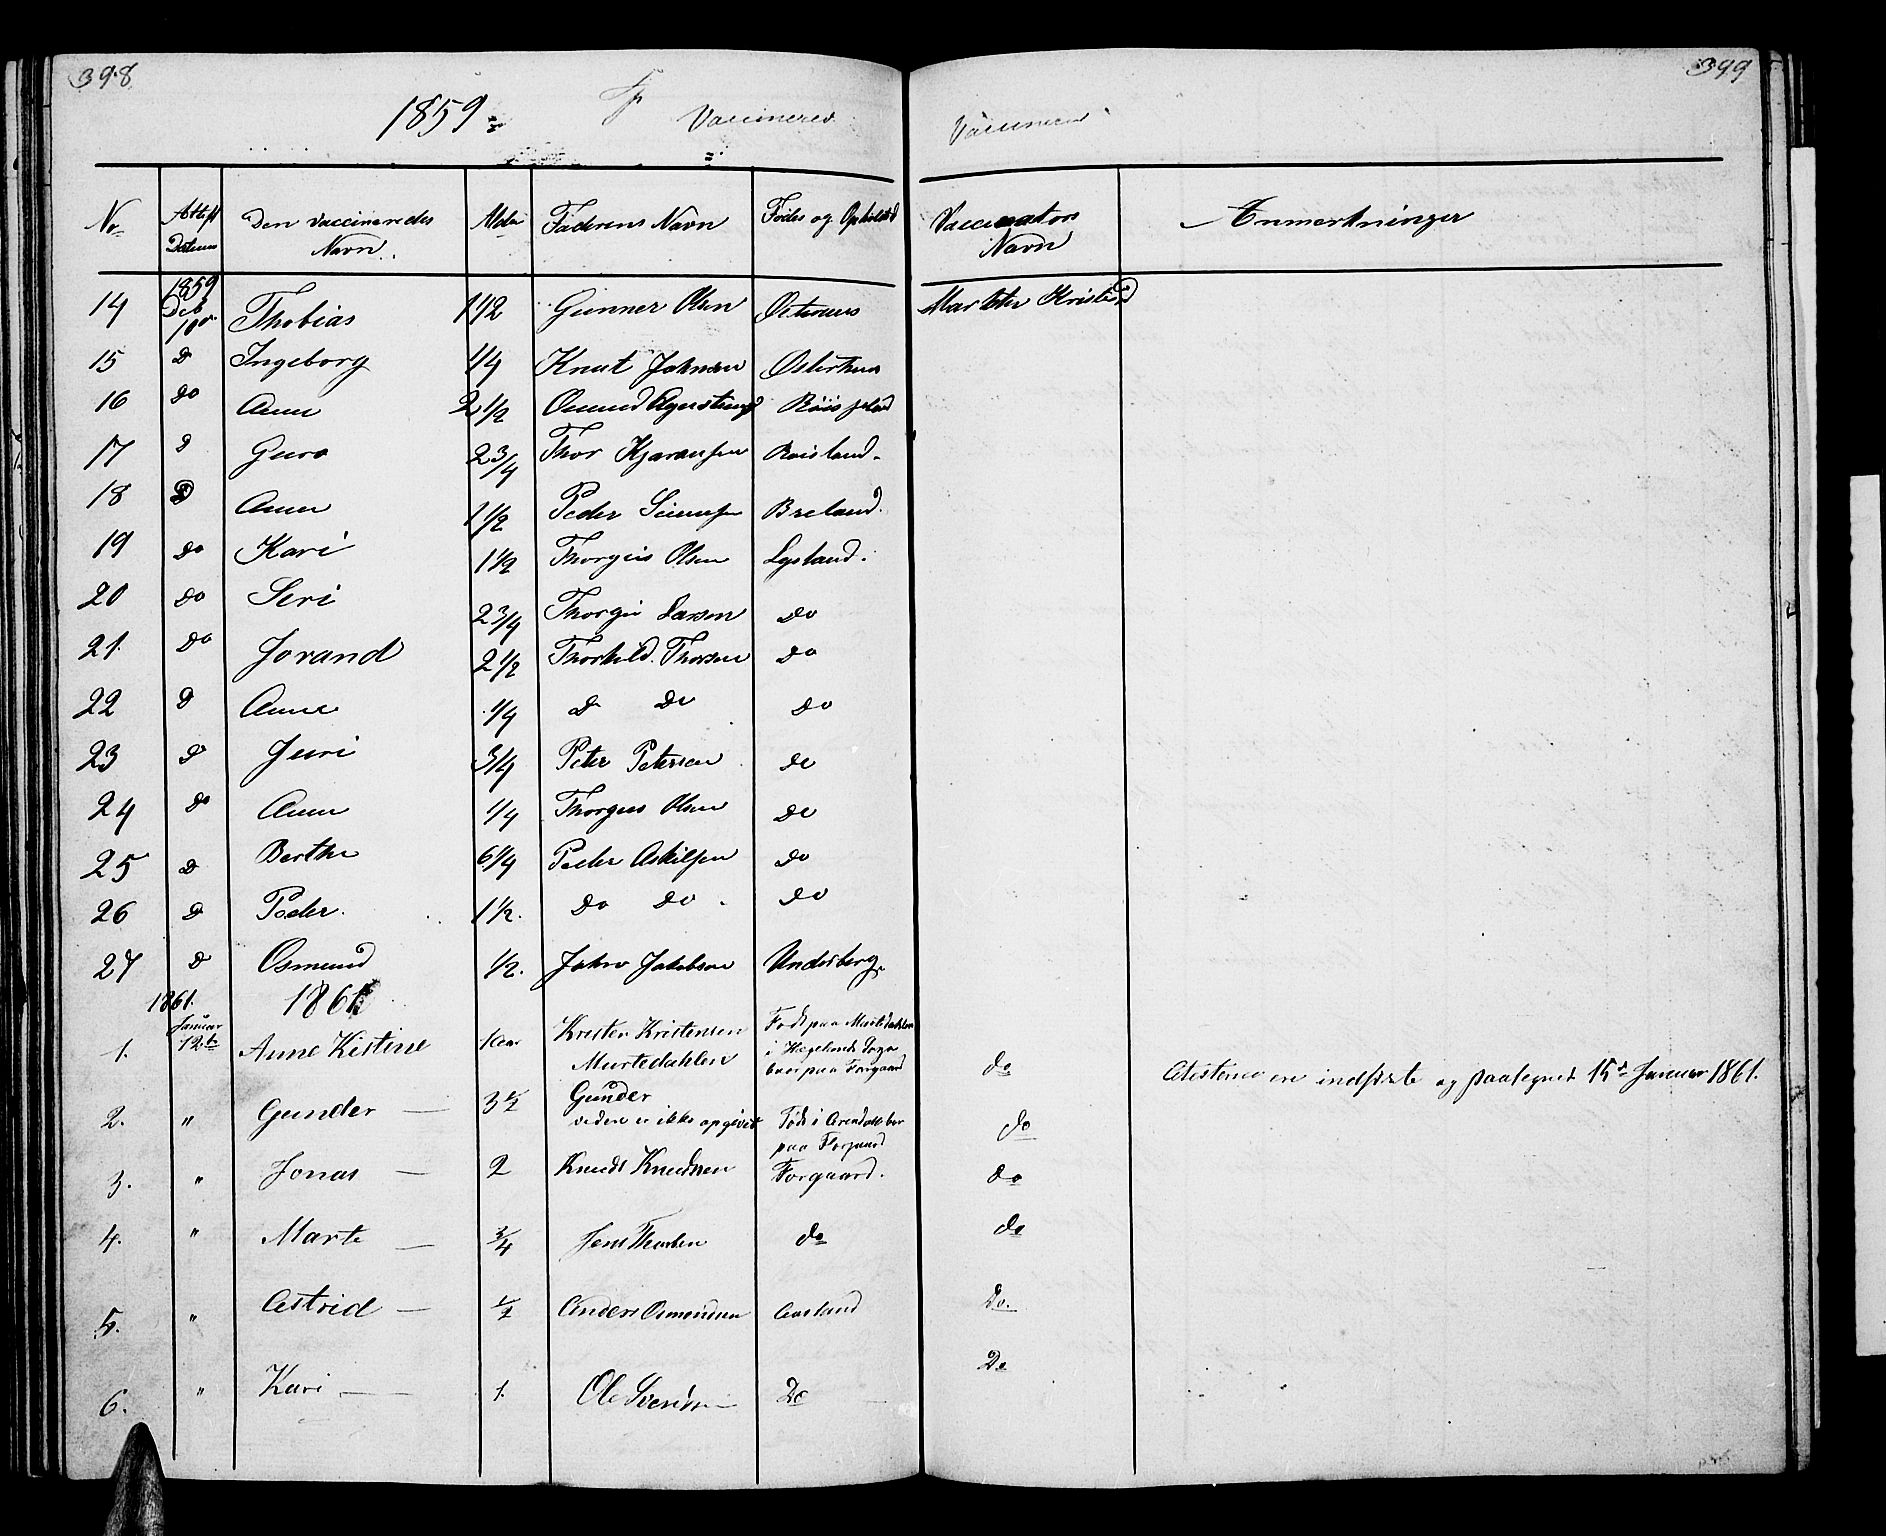 398
399
1859
Vaccinered
No
Attest Datum
Den vaccineredes Navn
Alder
Faderens Navn
Fødes og Opholdsted
Vaccinators Navn
Anmærkninger
14 1859 Deb 10 Thobias 1 1/2 Gunner Olsen
15 d Ingeborg 1/4 Knut Johnsen
16 do Anne 2 1/2 Osmund
17 d Guro 2 3/4 Thor Røisland
18 D Anne 1 1/2 Peder Breland
19 do Kari 1 1/2 Thorgius Olsen Lysland
20 do Seri 2 3/4 Thorgius Larsen do
21 do Jorand 2 1/2 Thorkild Thorsen do
22 d Anne 1/4 d do do
23 d Juri 3/4 Peter Petersen do
24 do Anne 1/4 Thorgius Olsen do
25 d Berthe 6 1/4 Peder Askilsen do
26 d Peder 1 1/2 do do do
27 d Osmund 1/2 John Jakobsen Underberg
1861. 1861
1. Januar 12te Anne Kistine 1 aar Kristen Kristensen Murtedahlen Født paa Murtedahlen i Hægelands Sogn boer paa Forgaard do Attesterne ere indførte og paategnet 15d Januar 1861.
2. " Gunder — 3 1/2 Gunder viden er ikke opgivet Født i Arendal boer paa Forgaard do
3. " Jonas — 2 Knudt Knudsen Forgaard. do
4. " Marte — 3/4 Jens do do
5. " Astrid — 1/2 Anders Osmondsen Aasland Do.
6. " Kari — 1. Ole Do Do